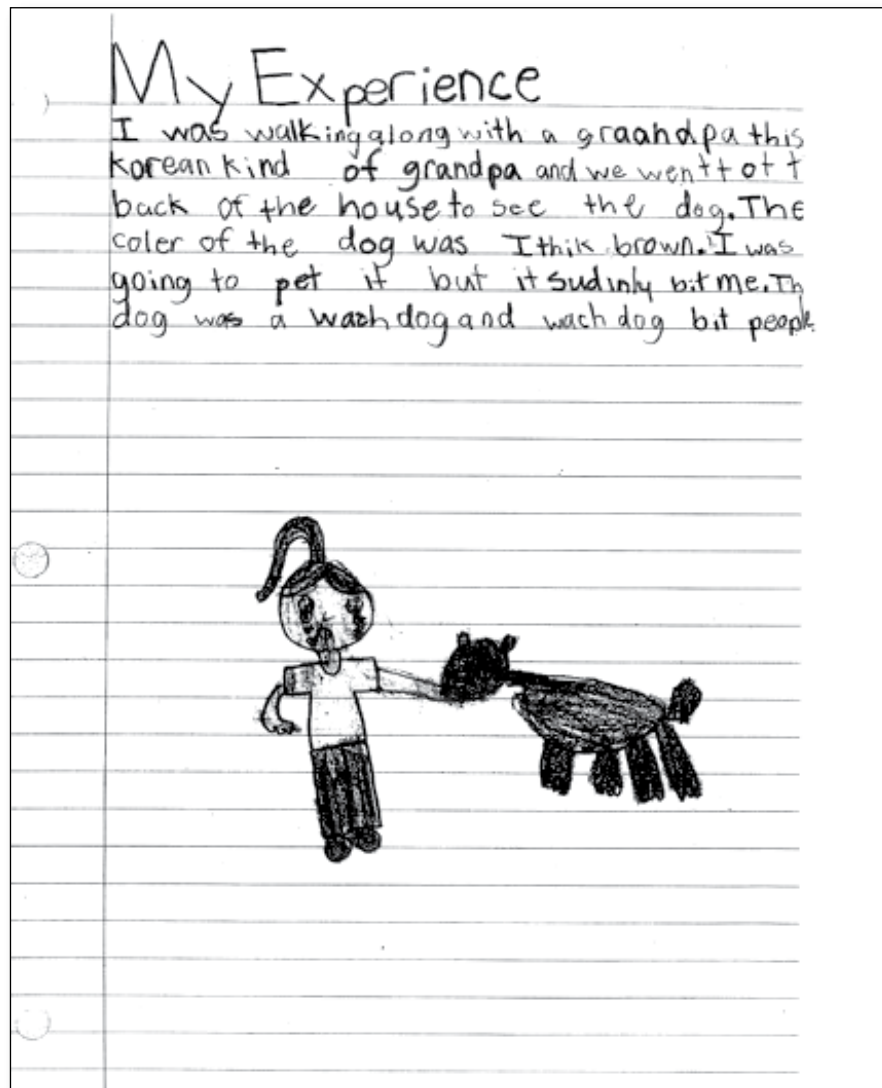 My Experience
I was walking along with a graandpa this
korean kind of grandpa and we wentt ott
back of the house to see the dog. The
coler of the dog was I thik brown. I was
going to pet it but it sudinly bit me. Th
dog was a wach dog and wach dog bit people.